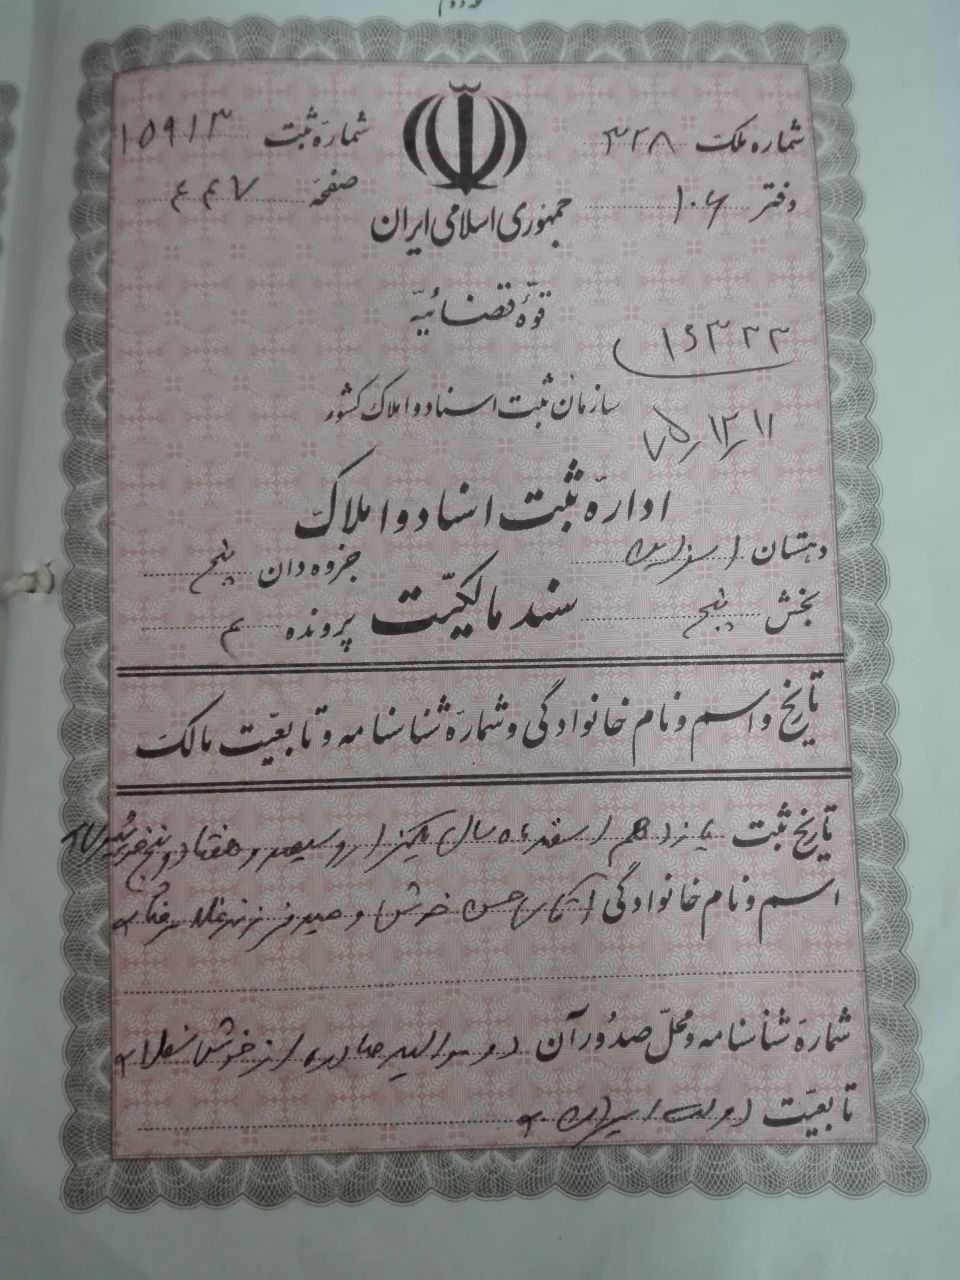 شماره ملک ۳۲۸
شمارۀ ثبت ۱۵۹۱۳
دفتر ۱۰۶
صفحه ۴۴۷
جمهوری اسلامی ایران
قوۀ قضائیه
۱۶۳۳۳
سازمان ثبت اسناد و املاک کشور
۷۵/۱۲/۱۱
ادارۀ ثبت اسناد و املاک
دهستان
جزوه دان پنج
بخش پنج
سند مالکیّت
پرونده
تاریخ و اسم و نام خانوادگی و شمارۀ شناسنامه و تابعیّت مالک
تاریخ ثبت یازدهم اسفند ماه سال یکهزار و سیصد و هفتاد و پنج
اسم و نام خانوادگی آقای حسن فرزند
شمارۀ شناسنامه و محلّ صدور آن دو صادره از
تابعیّت دولت ایران